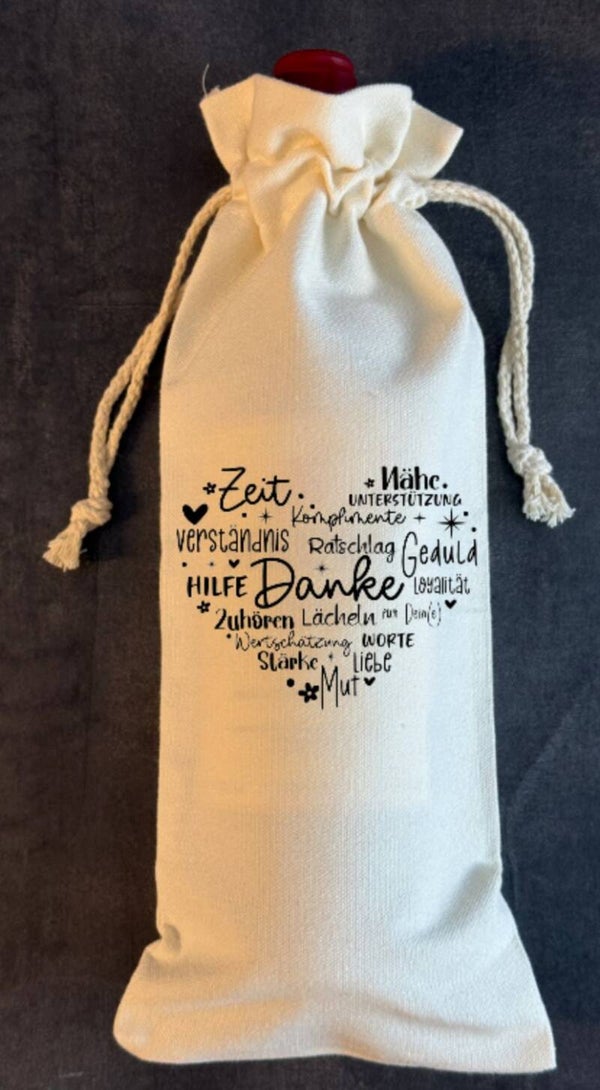 Zeit Nähe
UNTERSTÜTZUNG
Komplimente
verständnis Ratschlag Geduld
HILFE Danke Loyalität
Zuhören Lächeln für Dein(e)
Wertschätzung WORTE
Stärke Liebe
Mut